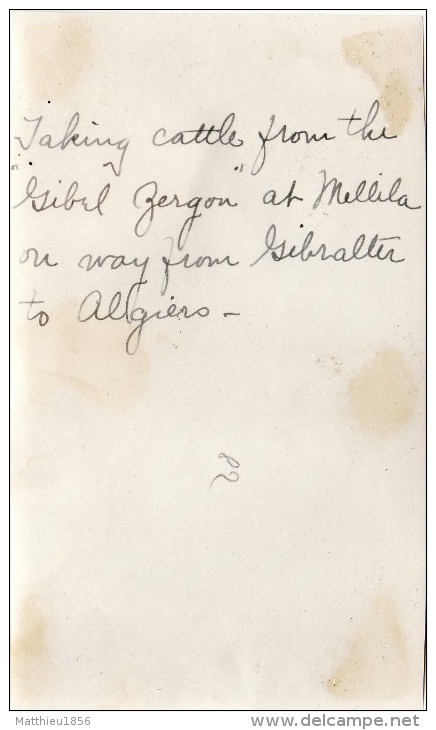 Taking cattle from the
"Gibel Zergon" at Mellila
on way from Gibralter
to Algiers -
82
Matthieu1856
www.delcampe.net